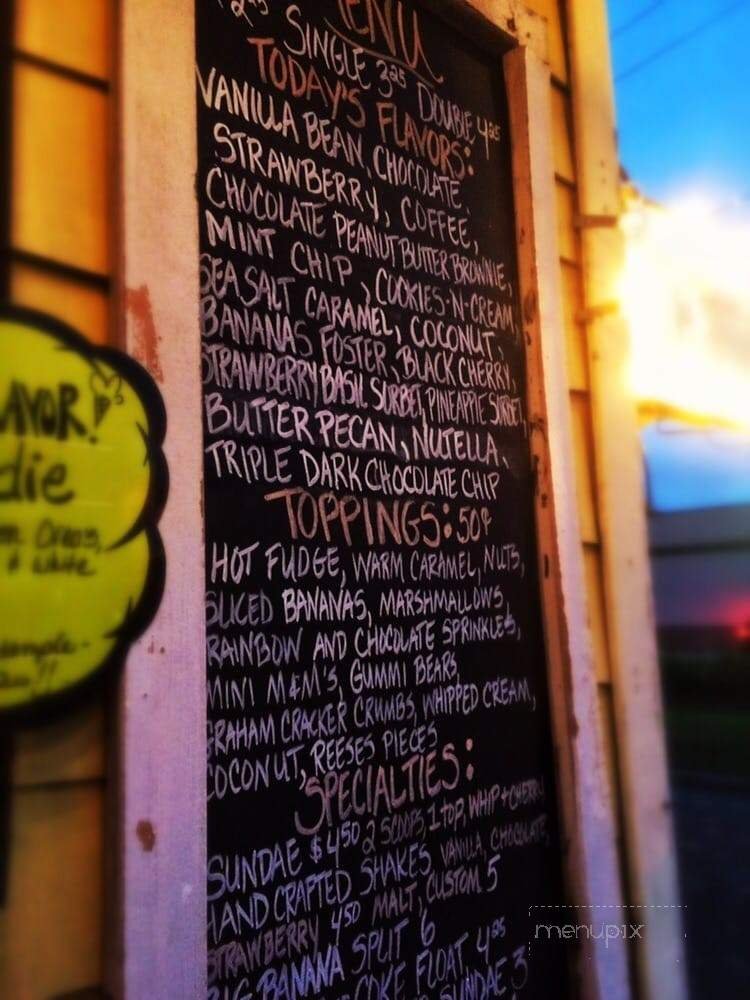 MENU
2.75 SINGLE 3.25 DOUBLE 4.25
TODAY'S FLAVORS:
VANILLA BEAN, CHOCOLATE,
STRAWBERRY, COFFEE,
CHOCOLATE PEANUT BUTTER BROWNIE,
MINT CHIP, COOKIES-N-CREAM,
SEA SALT CARAMEL, COCONUT,
BANANAS FOSTER, BLACK CHERRY,
STRAWBERRY BASIL SORBET, PINEAPPLE SORBET,
BUTTER PECAN, NUTELLA,
TRIPLE DARK CHOCOLATE CHIP
TOPPINGS: 50¢
HOT FUDGE, WARM CARAMEL, NUTS,
SLICED BANANAS, MARSHMALLOWS,
RAINBOW AND CHOCOLATE SPRINKLES,
MINI M&M'S, GUMMI BEARS,
GRAHAM CRACKER CRUMBS, WHIPPED CREAM,
COCONUT, REESES PIECES
SPECIALTIES:
SUNDAE $4.50 2 SCOOPS, 1 TOP, WHIP + CHERRY
HAND CRAFTED SHAKES, VANILLA, CHOCOLATE,
STRAWBERRY 4.50 MALT, CUSTOM 5
BIG BANANA SPLIT 6
COKE FLOAT 4.25
SUNDAE 3
AVOR!
die
+ white
menupix